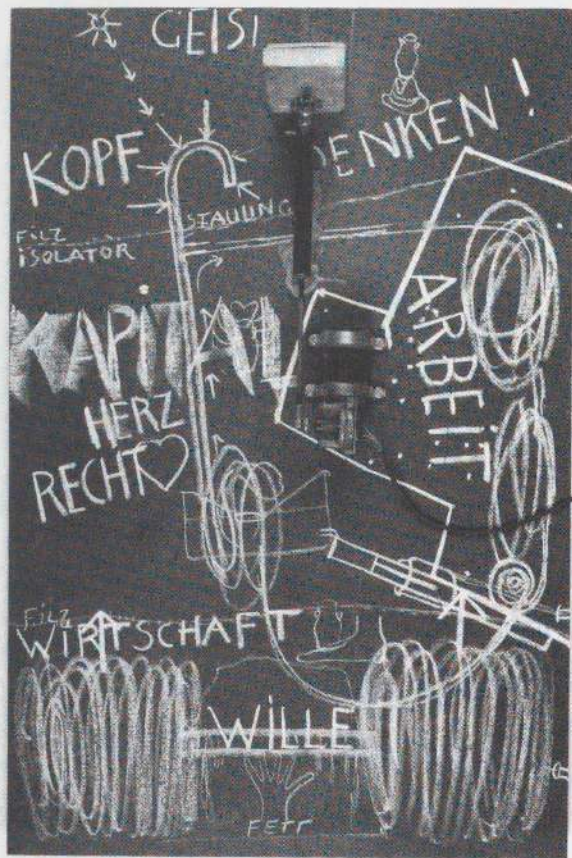 GEIST
KOPF
DENKEN!
STAUUNG
FILZ
ISOLATOR
KAPITAL
ARBEIT
HERZ
RECHT
FILZ
WIRTSCHAFT
WILLE
FETT